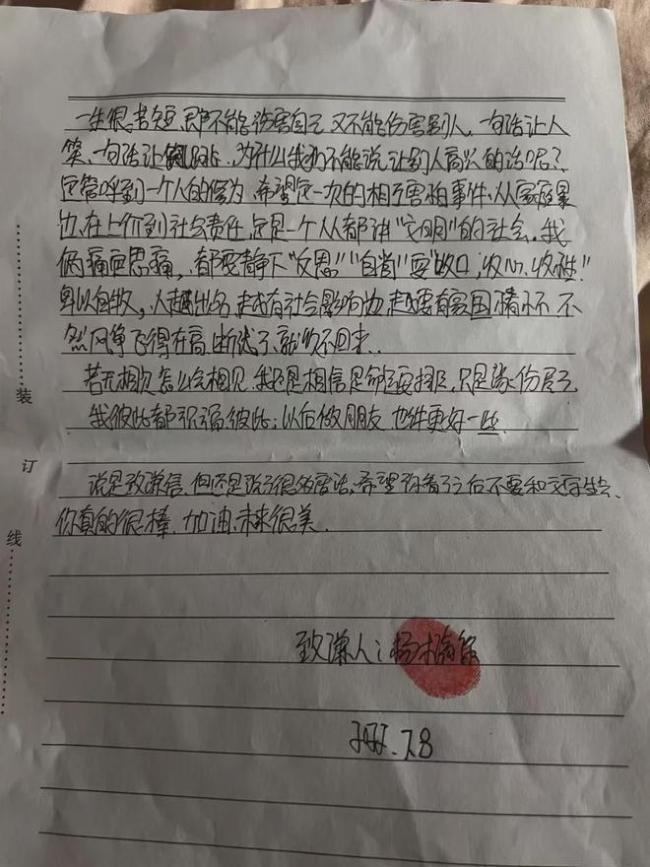 一生很短,即不能伤害自己 又不能伤害别人,一句话让人
笑,一句话让 跳,为什么我们不能说让别人高兴的话呢?
到一个人的 为,希望是一次的相互 事件,从家庭
边,在上 到社会责任,是一个人人都讲“文明”的社会,我
俩痛定思痛,都要静下“反思”“自省”要“收口,收心,收性!”
卑以自牧,人越出名,越有社会影响力 越要有 不
然风筝飞得在高,断线了,就收不回来..
若无相欠怎么会相见,我还是相信是命运安排,只是缘份尽了
我彼此都祝福彼此;以后做朋友 也许更好一些.
说是致谦信,但还是说了很多废话,希望你看了之后不要和 生气,
你真的很棒,加油,未来很美.
致谦人:杨
7.8
装
订
线